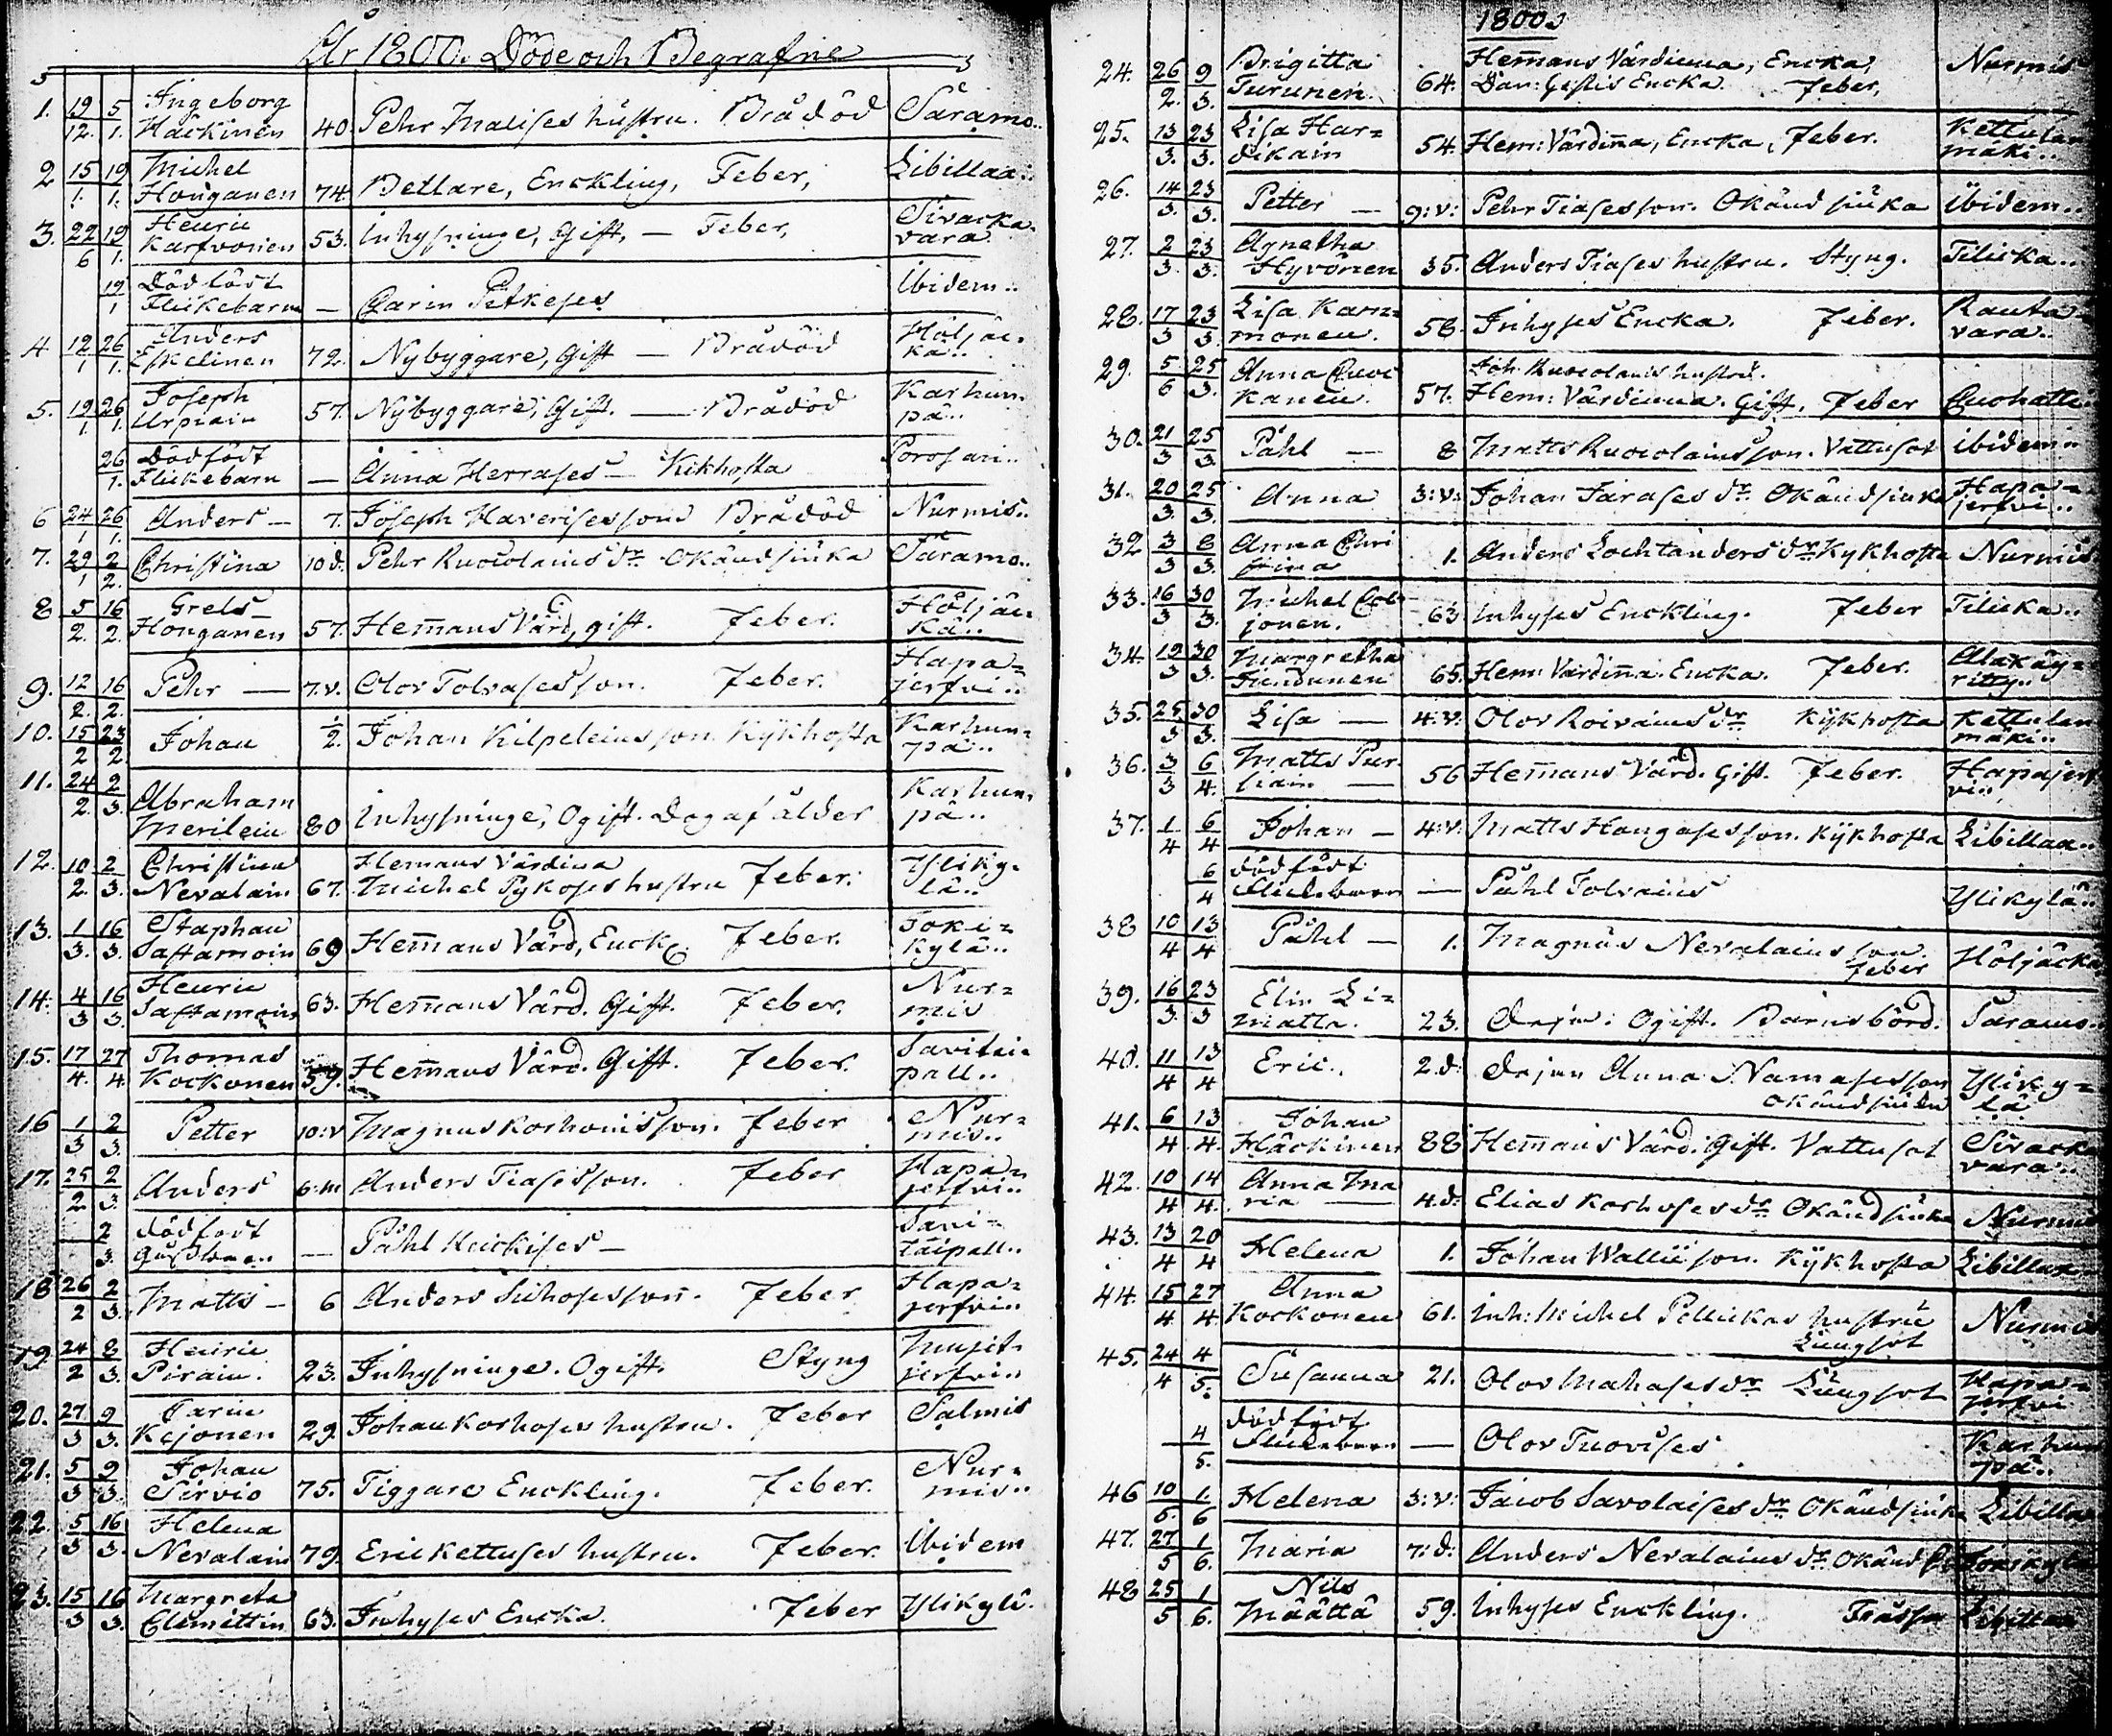 År 1800. Döde och Begrafne
1. 19/12. 5/1. Ingeborg Häckinen 40 Pehr Malises hustru. Brådöd Saramo..
2 15/1. 19/1. Michel Houganen 74. Betlare, Enckling, Feber, Libillaa..
3. 22/6 19/1. Henric Karfvonen 53. Inhysninge, Gift, — Feber, Sivackavara
19/1 Dödföst Flickebarn — Carin Petkeses Ibidem..
4 12/1 26/1. Anders Eskelinen 72. Nybyggare, Gift — Brådöd Höljäcka..
5. 19/1. 26/1. Joseph Urpiain 57. Nybyggare, Gift. — Brådöd Karhunpä..
26/1. Dödfödt Flickebarn — Anna Herrases — Kikhosta Porosari..
6 24/1 26/1. Anders — 7. Joseph Haverisesson Brådöd Nurmis..
7. 29/1 2/2. Christina 10 d. Pehr Ruocolains dr. Okänd siuka Saramo..
8 5/2. 16/2. Grels Houganen 57. Hemans Värd, gift. Feber. Höljäckä..
9. 12/2. 16/2. Pehr — 7.v. Olov Tolvasesson. Feber. Hapajerfvi..
10. 15/2 23/2 Johan ½. Johan Kilpeleins son Kykhosta Karhunpä..
11. 24/2. 2/3. Abraham Merilein 80 Inhysninge, Ogift. Dog af ålder Karhunpä..
12. 10/2. 2/3. Christina Nevalain 67. Hemans Värdina Michel Pykoses hustru Feber. Ylikylä..
13. 1/3. 16/3. Staphan Sastamoin 69 Hemans Värd, Enck. Feber. Jokikylä..
14. 4/3 16/3. Henric Sastamoin 63. Hemans Värd. Gift. Feber. Nurmis
15. 17/4. 27/4. Thomas Kockonen 59. Hemans Värd. Gift. Feber. Savitaipall..
16 1/3 2/3. Petter 10:v Magnus Korhonisson. Feber Nurmis..
17. 25/2 2/3. Anders 6:m Anders Tiasesson. Feber Hapajerfvi..
2/3. dödfodt — Påhl Heickises — Savitaipall..
18 26/2 2/3. Matts — 6 Anders Sihosesson. Feber Hapajerfvi..
19 24/2 8/3. Henric Pirain. 23. Inhysninge. Ogift. Styng Mujejerfvi..
20. 27/3 9/3. Carin Kejonen 29. Johan Korhoses hustru. Feber Salmis
21. 5/3 9/3. Johan Sirvio 75. Tiggare Enckling. Feber. Nurmis..
22. 5/3 16/3. Helena Nevalain 79. Eric Kettuses hustru. Feber. Ibidem
23. 15/3 16/3. Margreta Clemettin 63. Inhyses Encka. Feber Ylikylä.
1800
24. 26/2. 9/3. Brigitta Turunen. 64. Hemans Värdinna, Encka, Dan: Gestis Encka. Feber, Nurmis
25. 13/3. 23/3. Lisa Hardikain 54. Hem: Värdinna, Encka, Feber. Kettulanmäki..
26. 14/3. 23/3. Petter — 9:v: Pehr Tiasesson. Okänd siuka Ibidem..
27. 2/3. 23/3. Agnetha Hyvönen 35. Anders Tiases hustru. Styng. Tilicka..
28. 17/3 23/3. Lisa Karmonen. 58. Inhyses Encka. Feber. Rautavara..
29. 5/6 25/3. Anna Quickanen. 57. Joh. Ruocolains hustru. Hem: Värdinna. Gift. Feber Quohatti..
30. 21/3 25/3. Påhl — 8 Matts Ruocolains son. Vattusot ibidem..
31. 20/3. 25/3. Anna 3:v: Johan Järases dr. Okändsiuka Hapajerfvi..
32 3/3 8/3. Anna Christina 1. Anders Lochtanders dr. Kykhosta Nurmis
33. 16/3 30/3. Michel Coljonen. 63 Inhyses Enckling. Feber Tilicka..
34. 19/3 30/3. Margretha Tundunen 65. Hem: Värdinna. Encka. Feber. Alakäyritty..
35. 25/3 30/3. Lisa — 4:v. Olov Roivains dr Kykhosta Kettulanmäki..
36. 3/3 6/4. Matts Purliain — 56 Hemans Värd. Gift. Feber. Hapajerfvi..
37. 1/4 6/4 Johan — 4:v: Matts Hougasesson. Kykhosta Libillaa..
6/4 dödfödt Flickebarn — Påhl Tolvains Ylikylä..
38 10/4 13/4 Påhl — 1. Magnus Nevalains son. Feber Höljäcka
39. 16/3. 23/3 Elin Limatta. 23. Dejn: Ogift. Barnsbörd. Saramo..
40. 11/4 13/4 Eric.. 2.d. Dejan Anna Namases son Okändsiuka Ylikylä
41. 6/4 13/4. Johan Häckinen 88 Hemans Värd. Gift. Vattusot Sivackavara..
42. 10/4 14/4. Anna Maria — 4.d: Elias Korhoses dr. Okändsiuka Nurmis
43. 13/4 20/4 Helena 1. Johan Wallii son. Kykhosta Libillaa
44. 15/4. 27/4. Anna Kockonen 61. Inh: Michel Pellickas hustru Lungsot Nurmis
45. 24/4 4/5. Susanna 21. Olov Mahases dr Lungsot Hapajerfvi
4/5. dödfödt Flickebarn — Olov Tuovises Karhunpä..
46 10/5. 1/6 Helena 3:v: Jacob Savolaises dr Okändsiuka Libilla
47. 27/5 1/6. Maria 7:d: Anders Nevalains dr. Okänd
48 25/5 1/6. Nils Määttä 59. Inhyses Enckling. Libillaa